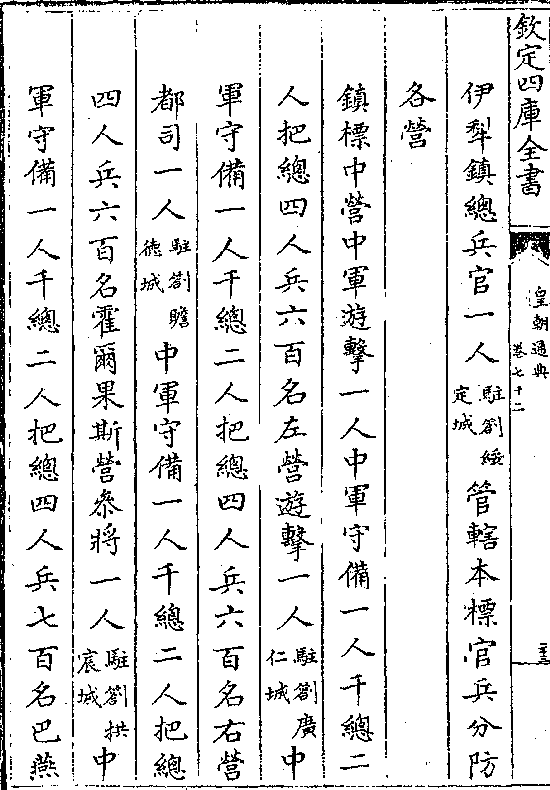 欽定四庫全書
皇朝通典
卷七十二
伊犁鎮總兵官一人駐劄綏定城管轄本標官兵分防
各營
鎮標中營中軍遊擊一人中軍守備一人千總二
人把總四人兵六百名左營遊擊一人駐劄廣仁城中
軍守備一人千總二人把總四人兵六百名右營
都司一人駐劄瞻德城中軍守備一人千總二人把總
四人兵六百名霍爾果斯營叅將一人駐劄拱宸城中
軍守備一人千總二人把總四人兵七百名巴燕